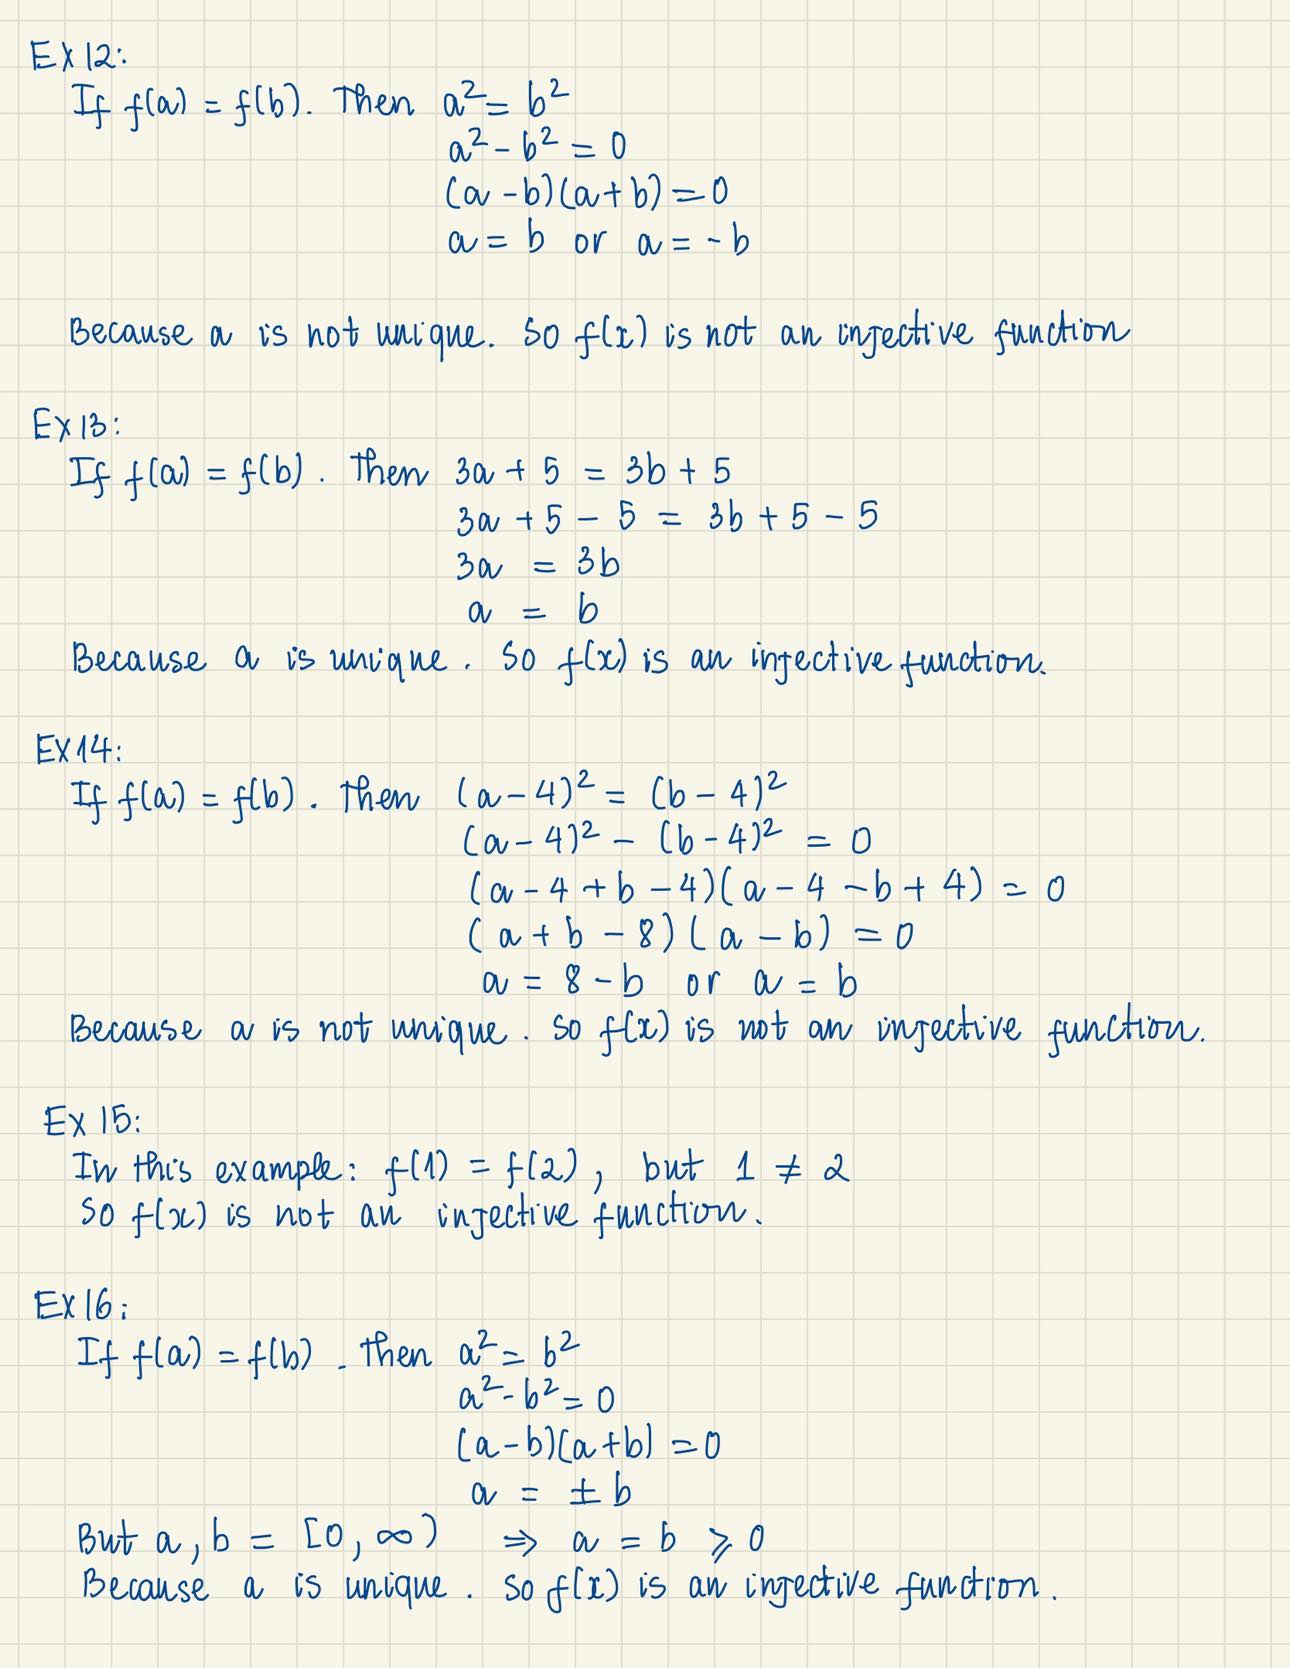 Ex 12:
If f(a) = f(b). Then a² = b²
a² - b² = 0
(a - b)(a + b) = 0
a = b or a = - b
Because a is not unique. So f(x) is not an injective function
Ex 13:
If f(a) = f(b). Then 3a + 5 = 3b + 5
3a + 5 - 5 = 3b + 5 - 5
3a = 3b
a = b
Because a is unique. So f(x) is an injective function.
Ex 14:
If f(a) = f(b). Then (a - 4)² = (b - 4)²
(a - 4)² - (b - 4)² = 0
(a - 4 + b - 4)(a - 4 - b + 4) = 0
(a + b - 8)(a - b) = 0
a = 8 - b or a = b
Because a is not unique. So f(x) is not an injective function.
Ex 15:
In this example: f(1) = f(2), but 1 ≠ 2
So f(x) is not an injective function.
Ex 16:
If f(a) = f(b). Then a² = b²
a² - b² = 0
(a - b)(a + b) = 0
a = ± b
But a, b = [0, ∞) ⇒ a = b ⩾ 0
Because a is unique. So f(x) is an injective function.